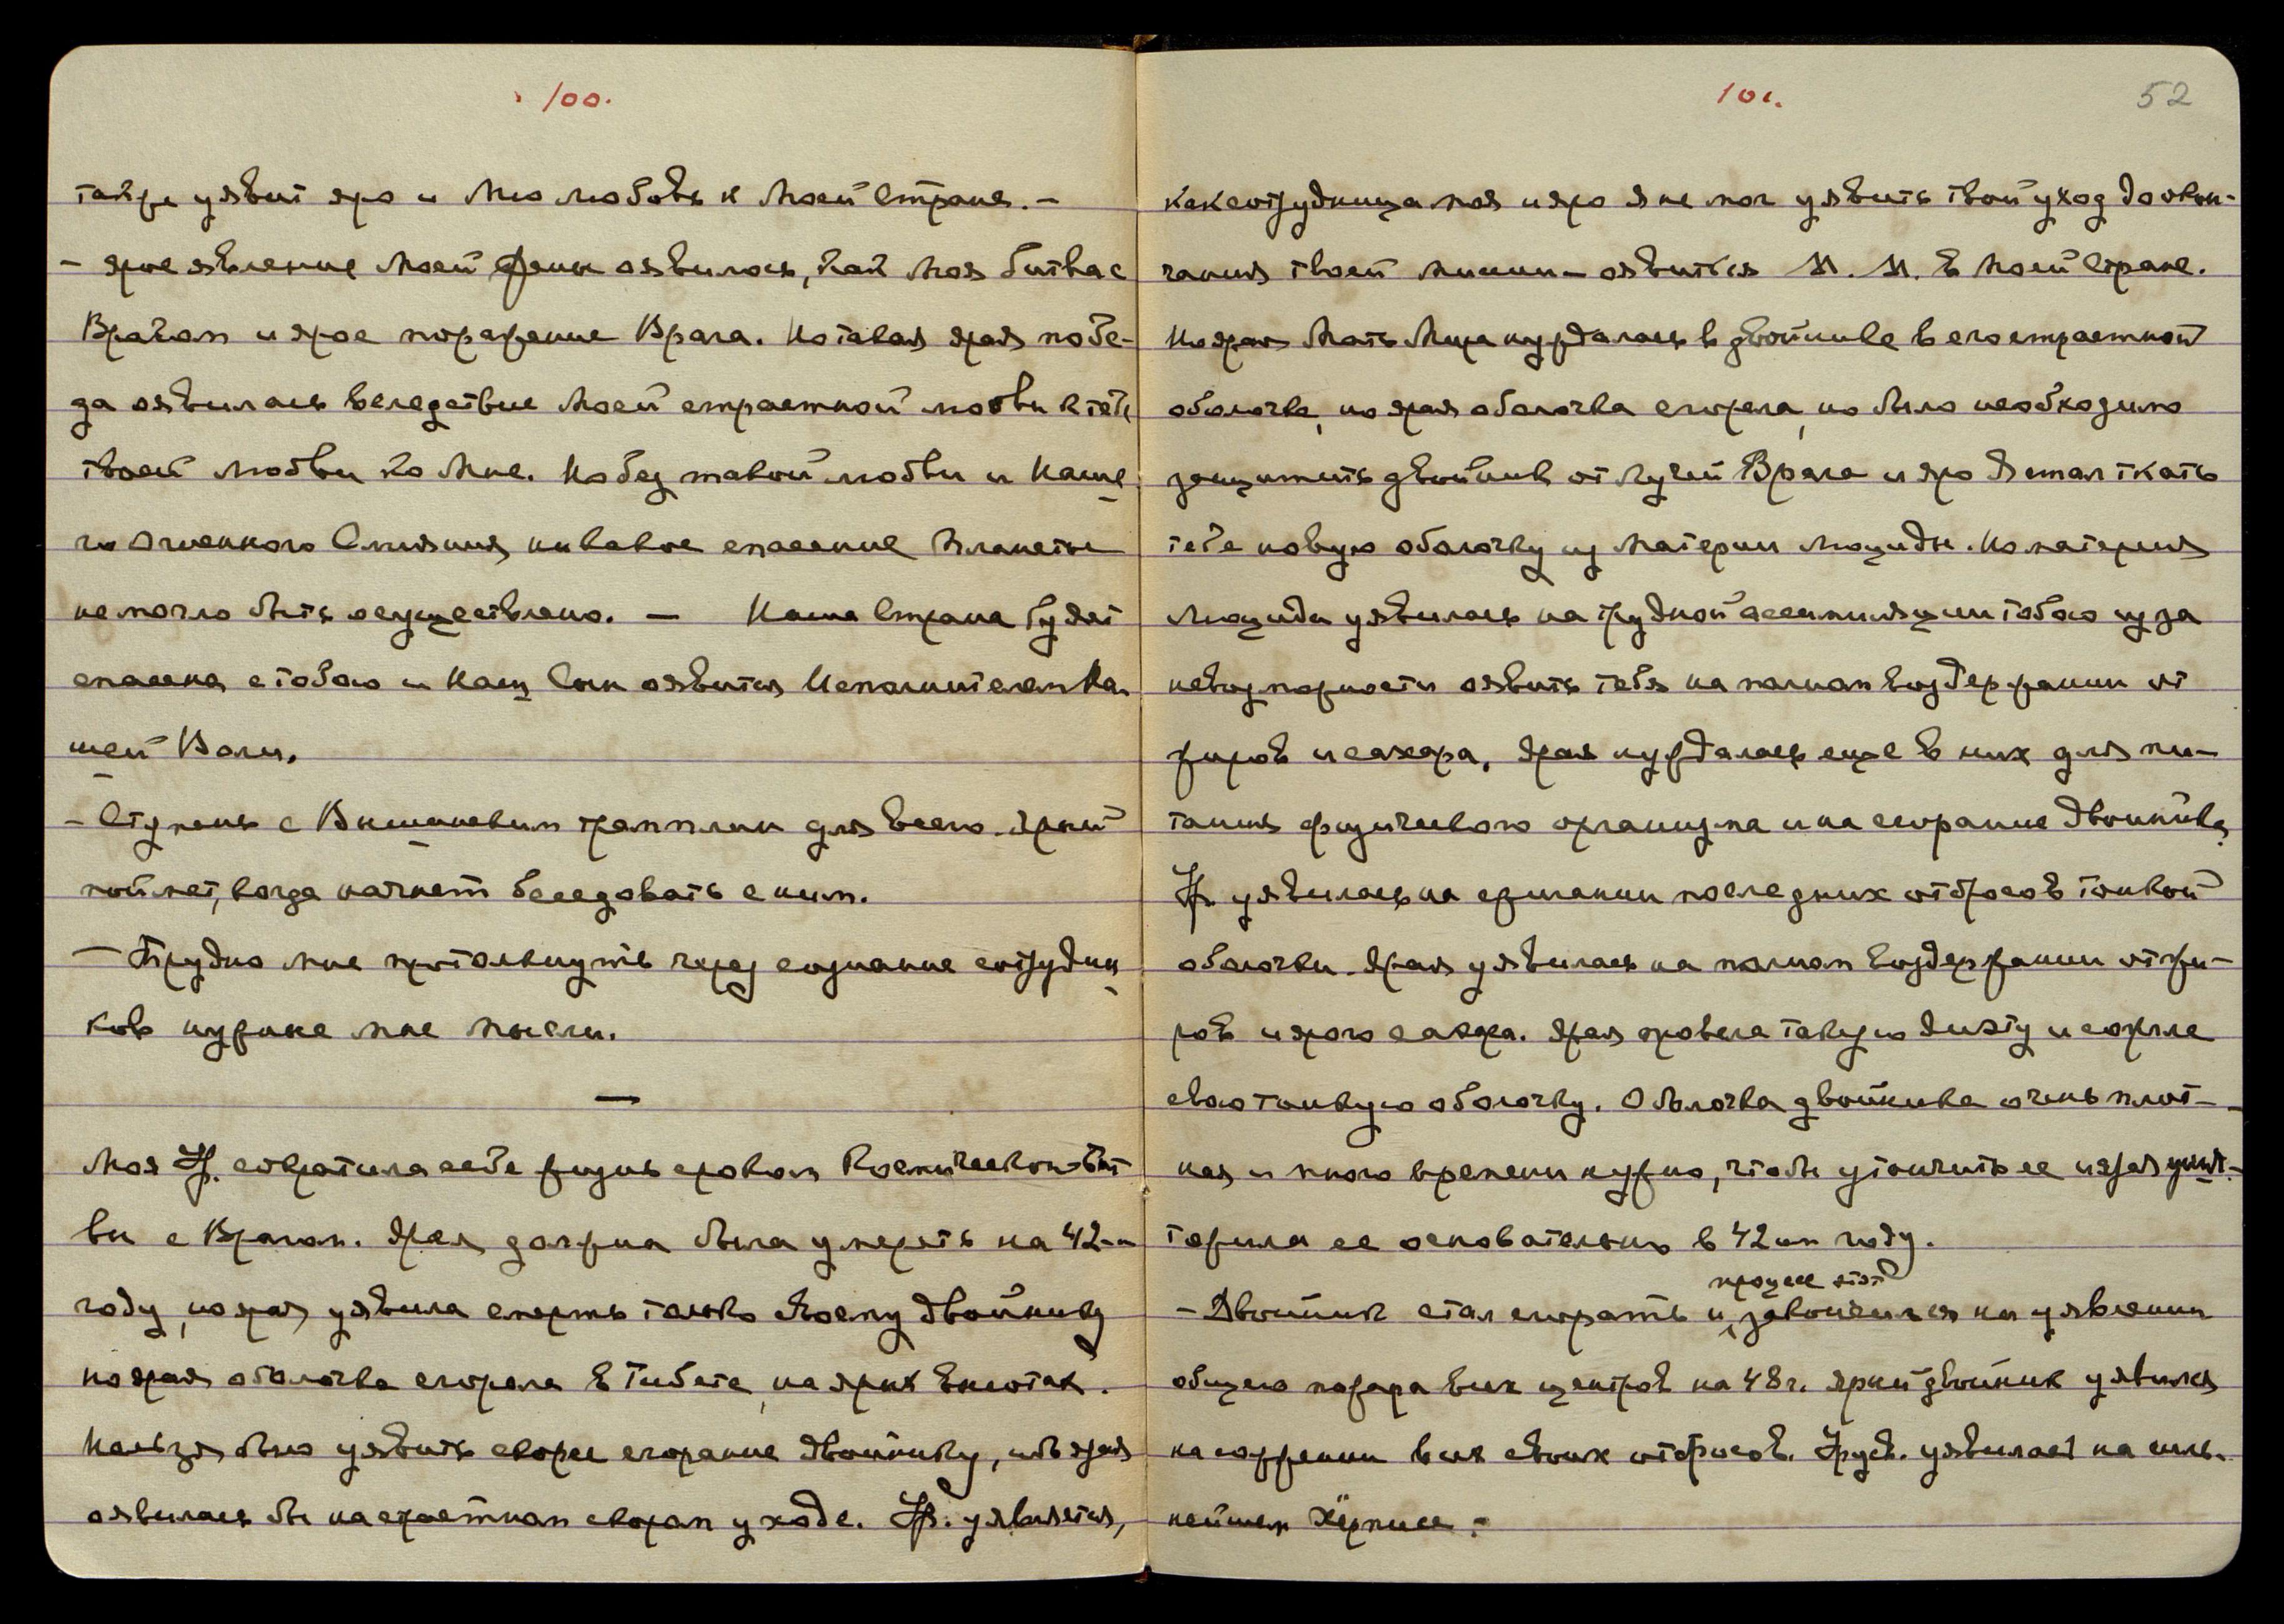 100.
также уявит яро и Мою любовь к Моей Стране. —
— Ярое явление Моей Фени оявилось, как Моя битва с
Врагом и ярое поражение Врага. Но такая ярая побе-
да оявилась вследствие Моей страстной любви к тебе
твоей любви ко Мне. Но без такой любви и Наше-
го Огненного Слияния никакое спасение Планеты
не могло быть осуществлено. — Наша Страна будет
спасена с тобою и Наш Сын оявится Исполнителем На-
шей Воли.
— Ступень с Вышинским трамплин для всего. Яркий
поймет, когда начнет беседовать с ним.
— Трудно мне протолкнуть через сознание сотрудни-
ков нужные мне мысли.
—
Моя Ур. сократила себе жизнь сроком Космической Бит-
вы с Врагом. Ярая должна была умереть на 42-м
году, но ярая уявила смерть только своему двойнику
но ярая оболочка сгорела в Тибете, на ярых высотах.
Нельзя было уявить скорее сгорание двойнику, ибо ярая
оявилась бы на страстном скором уходе. Ур. уявляется,
101.
52
как сотрудница моя и яро Я не мог уявить твой уход до окон-
чания твоей миссии — оявиться И. И. в Моей Стране.
Но ярая Мать Мира нуждалась в двойнике в его страстной
оболочке, но ярая оболочка сгорела, но было необходимо
защитить двойник от Лучей Врага и яро Я стал ткать
тебе новую оболочку из Материи Люциды. Но материя
Люцида уявилась на трудной ассимиляции тобою из за
невозможности оявить тебя на полном воздержании от
жиров и сахара. Ярая нуждалась еще в них для пи-
тания физического организма и на сгорание двойника.
Ур. уявилась на сжигании последних отбросов тонкой
оболочки. Ярая уявилась на полном воздержании от жи-
ров и ярого сахара. Ярая провела такую диэту и сожгла
свою тонкую оболочку. Оболочка двойника очень плот-
ная и много времени нужно, чтобы утончить ее и ярая уничт-
тожила ее основательно в 42-ом году.
— Двойник стал сгорать и процесс этот закончился на уявлении
общего пожара всех центров на 48 г. Яркий двойник уявился
на сожжении всех своих отбросов. Урусв. уявилась на силь-
нейшем Хёрписе. —